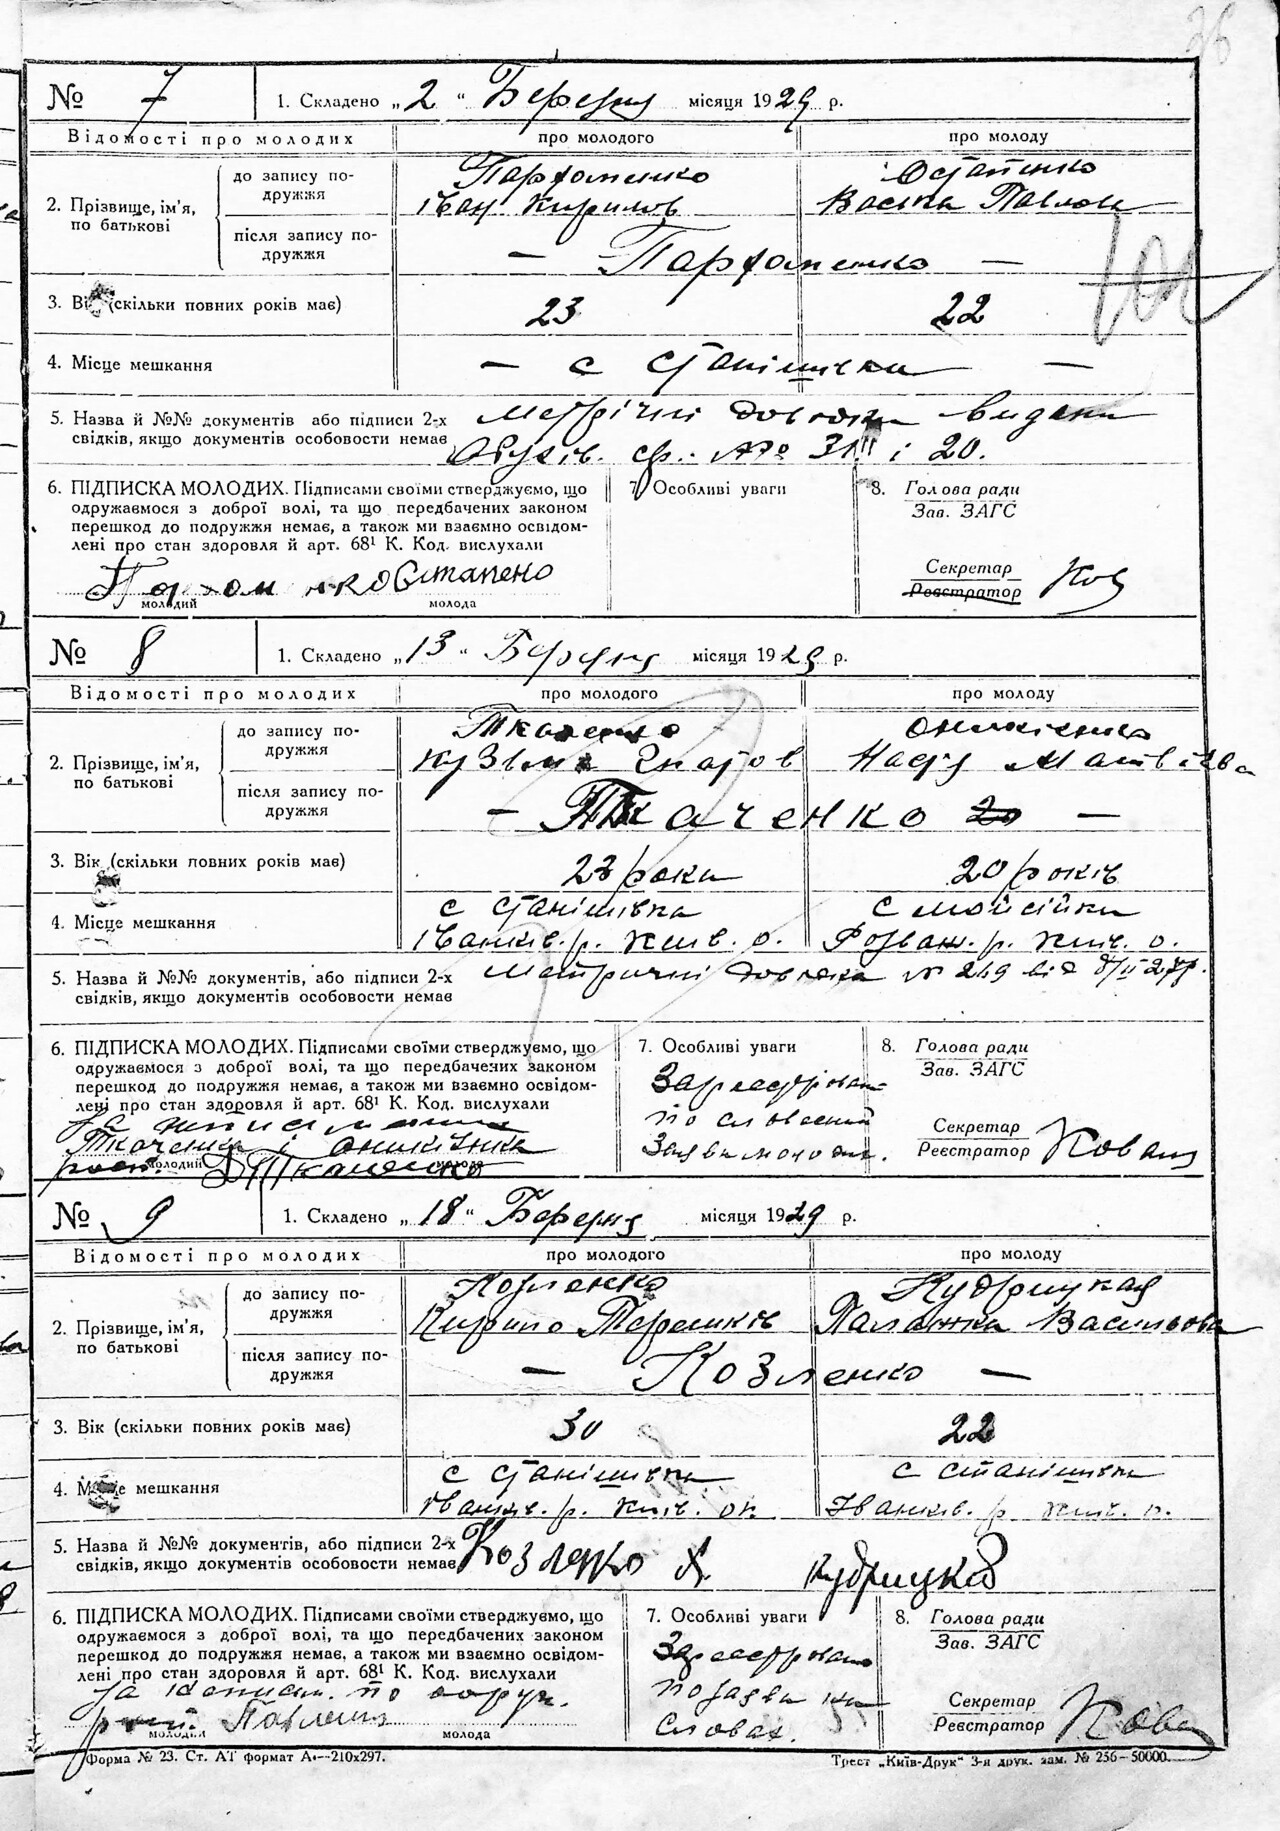 36
№ 7 1. Складено „2“ Березня місяця 1929 р.
Відомості про молодих про молодого про молоду
2. Прізвище, ім'я, по батькові
до запису по-
дружжя
Пархоменко
Іван Кирилов
Остапенко
Павлов
після запису по-
дружжя
— Пархоменко —
3. Вік (скільки повних років має) 23 22
4. Місце мешкання — с Станішівка —
5. Назва й №№ документів або підписи 2-х Метрічні довідки видани
свідків, якщо документів особовости немає ср. № 31 і 20.
6. ПІДПИСКА МОЛОДИХ. Підписами своїми стверджуємо, що
одружаємося з доброї волі, та що передбачених законом
перешкод до подружжя немає, а також ми взаємно освідом-
лені про стан здоровля й арт. 68¹ К. Код. вислухали
Пархоменко Остапено
молодий молода
7. Особливі уваги
8. Голова ради
Зав. ЗАГС
Секретар
Реєстратор
Ков
№ 8 1. Складено „13“ Березня місяця 1929 р.
Відомості про молодих про молодого про молоду
2. Прізвище, ім'я,
по батькові
до запису по-
дружжя
Ткаченко
Кузьма Гнатов
Оникієнко
Матвіїва
після запису по-
дружжя
— Ткаченко —
3. Вік (скільки повних років має) 23 роки 20 років
4. Місце мешкання
с Станішівка
Іванків. р. Київ. о.
с Мойсійки
Розваж. р. Київ. о.
5. Назва й №№ документів, або підписи 2-х Метричні довідка № 249 від
свідків, якщо документів особовости немає
6. ПІДПИСКА МОЛОДИХ. Підписами своїми стверджуємо, що
одружаємося з доброї волі, та що передбачених законом
перешкод до подружжя немає, а також ми взаємно освідом-
лені про стан здоровля й арт. 68¹ К. Код. вислухали
За
Ткаченка і
Ткаченко
молодий молода
7. Особливі уваги
Зареєстрован
по словесній
Заяви молодих.
8. Голова ради
Зав. ЗАГС
Секретар
Реєстратор
№ 9 1. Складено „18“ Березня місяця 1929 р.
Відомості про молодих про молодого про молоду
2. Прізвище, ім'я,
по батькові
до запису по-
дружжя
Козленко
Кирило
Кудрицкая
Палажка Васильова
після запису по-
дружжя
— Козленко —
3. Вік (скільки повних років має) 30 22
4. Місце мешкання
с Станішівка
Іванків. р. Київ. ок.
с Станішівка
Іванків. р. Київ. о.
5. Назва й №№ документів, або підписи 2-х
свідків, якщо документів особовости немає Козленко Кудрицка
6. ПІДПИСКА МОЛОДИХ. Підписами своїми стверджуємо, що
одружаємося з доброї волі, та що передбачених законом
перешкод до подружжя немає, а також ми взаємно освідом-
лені про стан здоровля й арт. 68¹ К. Код. вислухали
За по
молодий молода
7. Особливі уваги
Зареєстровано
по заяви на
словах.
8. Голова ради
Зав. ЗАГС
Секретар
Реєстратор
Форма № 23. Ст. АТ формат А₄—210x297. Трест „Київ-Друк“ 3-я друк. зам. № 256—50000.